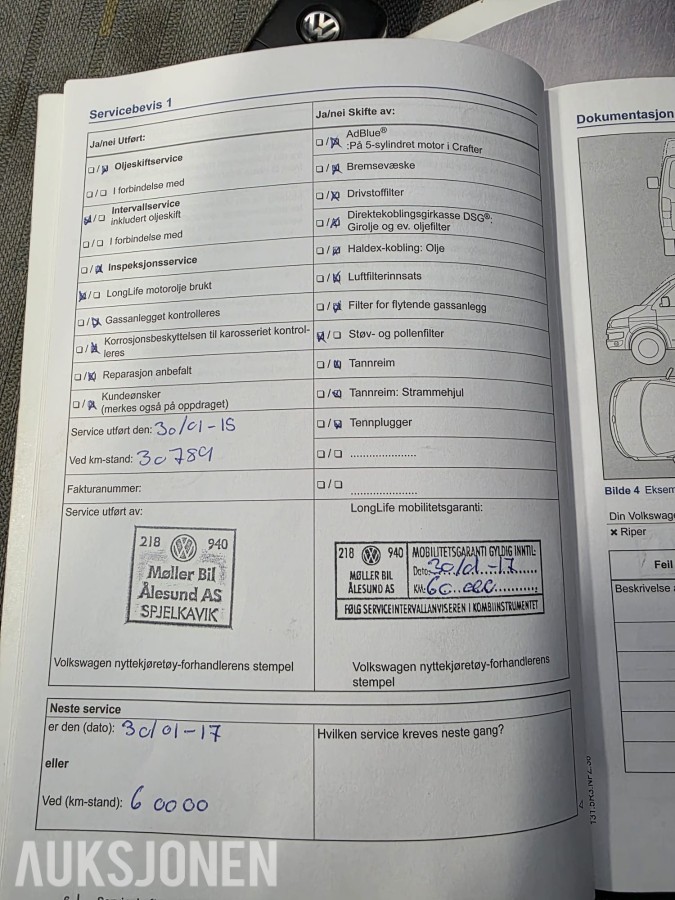 Servicebevis 1
Ja/nei Utført:
Oljeskiftservice
I forbindelse med
Intervallservice
inkludert oljeskift
I forbindelse med
Inspeksjonsservice
LongLife motorolje brukt
Gassanlegget kontrolleres
Korrosjonsbeskyttelsen til karosseriet kontrol-
leres
Reparasjon anbefalt
Kundeønsker
(merkes også på oppdraget)
Service utført den: 30/01-15
Ved km-stand: 30789
Fakturanummer:
Service utført av:
218 940
Møller Bil
Ålesund AS
SPJELKAVIK
Volkswagen nyttekjøretøy-forhandlerens stempel
Ja/nei Skifte av:
AdBlue®
:På 5-sylindret motor i Crafter
Bremsevæske
Drivstoffilter
Direktekoblingsgirkasse DSG®:
Girolje og ev. oljefilter
Haldex-kobling: Olje
Luftfilterinnsats
Filter for flytende gassanlegg
Støv- og pollenfilter
Tannreim
Tannreim: Strammehjul
Tennplugger
.....................
.....................
LongLife mobilitetsgaranti:
218 940 MOBILITETSGARANTI GYLDIG INNTIL:
MØLLER BIL Dato: 30/01-17
ÅLESUND AS KM: 60 000
FØLG SERVICEINTERVALLANVISEREN I KOMBIINSTRUMENTET
Volkswagen nyttekjøretøy-forhandlerens
stempel
Neste service
er den (dato): 30/01-17
eller
Ved (km-stand): 60000
Hvilken service kreves neste gang?
Dokumentasjon
Bilde 4 Eksem
Din Volkswage
× Riper
Feil
Beskrivelse
AUKSJONEN